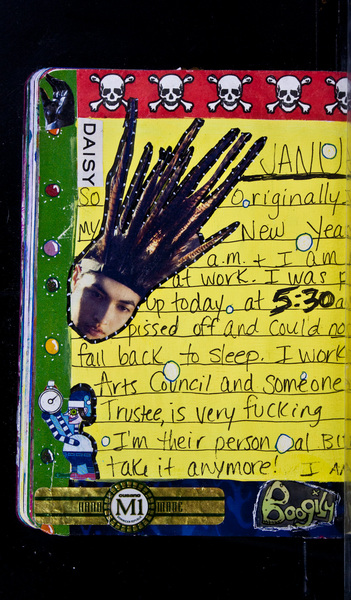 DAISY
JANU
So Originally,
my New Yea
a.m. + I am
at work. I was
up today at 5:30 a
pissed off and could no
fall back to sleep. I work
Arts Council and someone
Trustee, is very fucking
I'm their person al BU
take it anymore! I AM
M1
Boogily